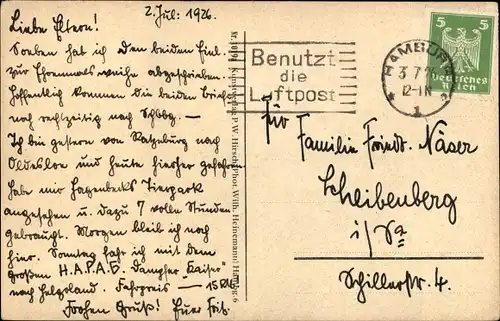 2. Juli 1926.
Liebe Eltern!
Soeben hab ich den beiden Einl.
zur Ehrenmalsweihe abgeschrieben.
Hoffentlich kommen die beiden Briefe
noch rechtzeitig nach Schbbg. —
Ich bin gestern von Ratzeburg nach
Oldesloe und heute hierher gefahren.
Habe mir Hagenbecks Tierpark
angesehen u. dazu 7 volle Stunden
gebraucht. Morgen bleib ich noch
hier. Sonntag fahr ich mit dem
Großen H.A.P.A.G. Dampfer "Kaiser"
nach Helgoland. Fahrpreis — 15 RM
Frohen Gruß! Euer
Benutzt
die
Luftpost
HAMBURG
3.7.
12-1N
1
5 5
Deutsches
Reich
An
Familie Friedr. Näser
Scheibenberg
i/Sa
Schillerstr. 4.